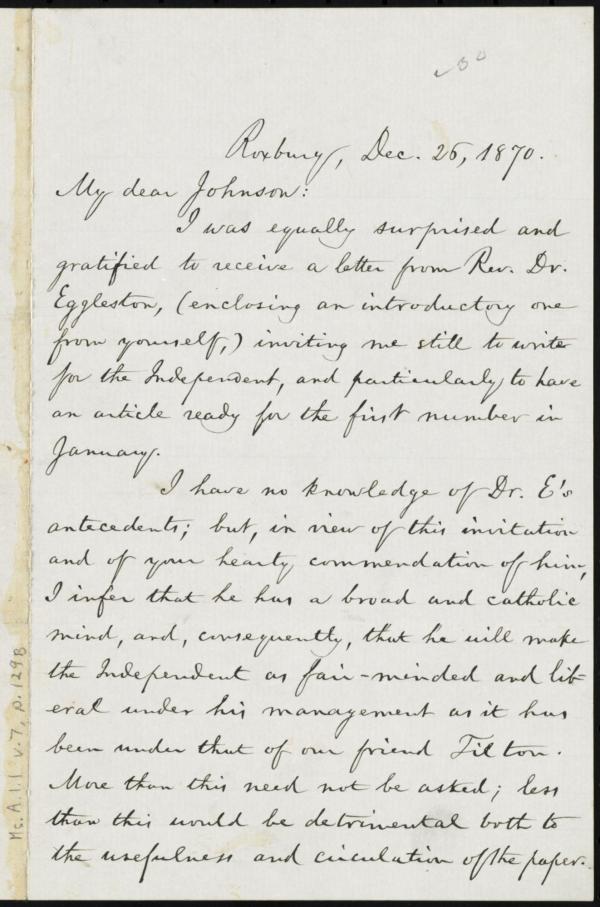 Roxbury, Dec. 26, 1870.
My dear Johnson:
I was equally surprised and
gratified to receive a letter from Rev. Dr.
Eggleston, (enclosing an introductory one
from yourself,) inviting me still to write
for the Independent, and particularly to have
an article ready for the first number in
January.
I have no knowledge of Dr. E's
antecedents; but, in view of this invitation
and of your hearty commendation of him,
I infer that he has a broad and catholic
mind, and, consequently, that he will make
the Independent as fair-minded and lib-
eral under his management as it has
been under that of our friend Tilton.
More than this need not be asked; less
than this would be detrimental both to
the usefulness and circulation of the paper.
Ms. A.1.1 v.7, p.129B